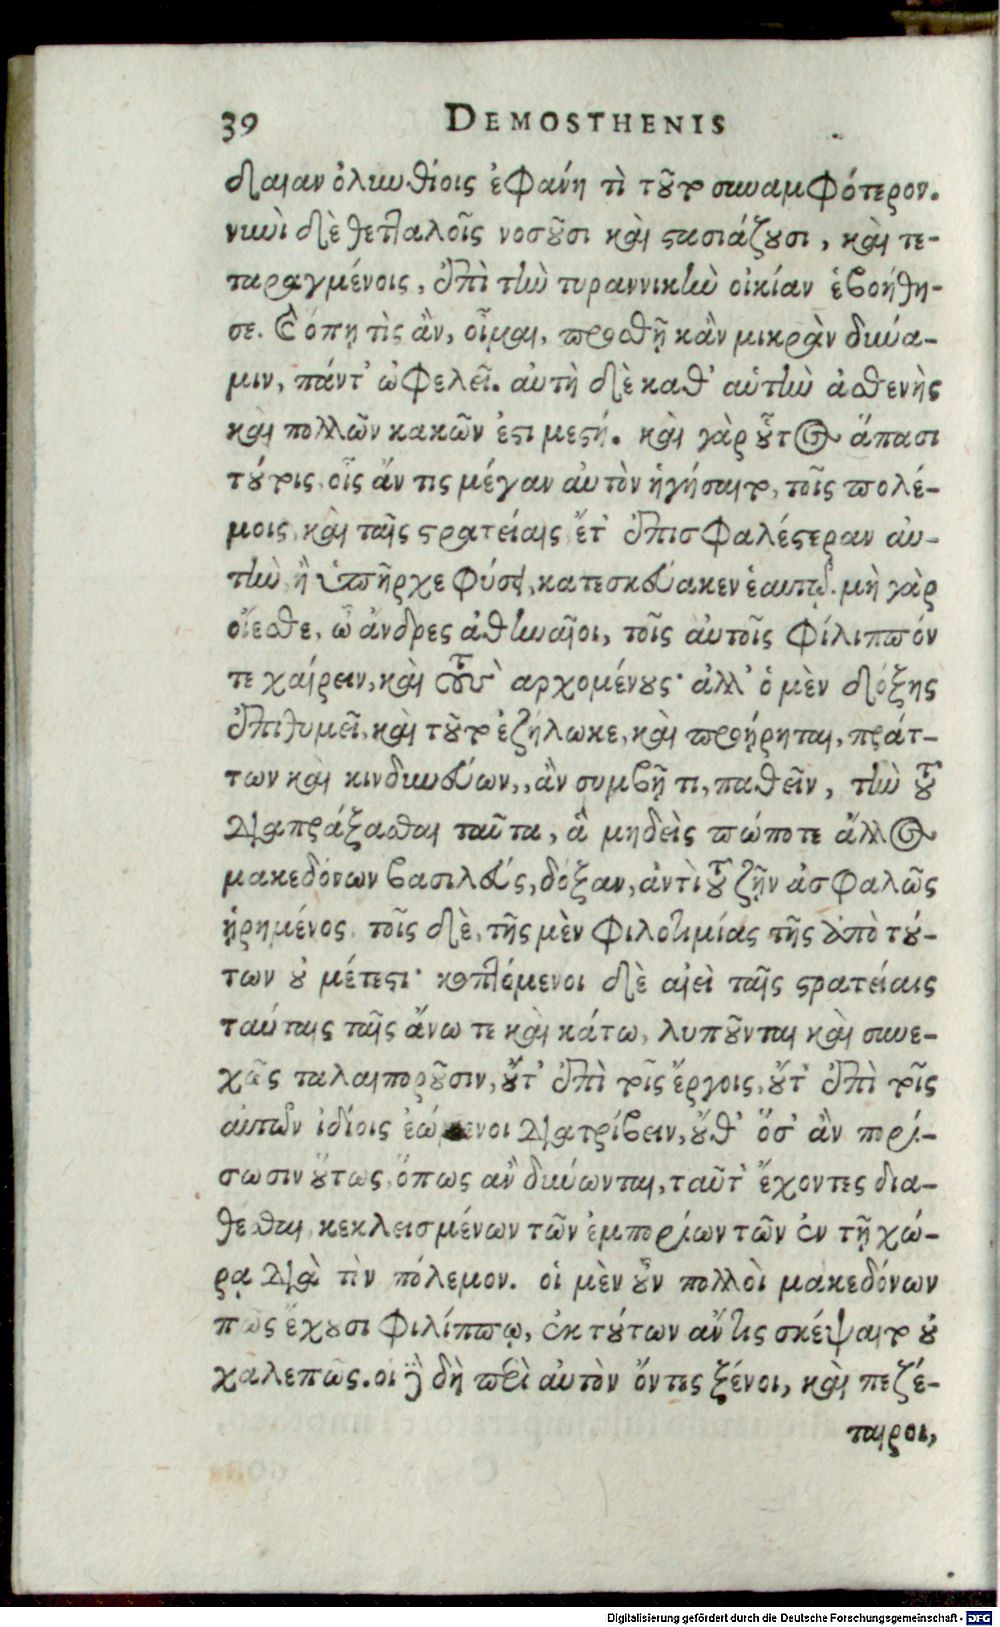 39 DEMOSTHENIS
δαιαν ὀλυνθίοις ἐφανή τὶ τοῦτο συναμφότερον.
νυνὶ δὲ θετταλοῖς νοσοῦσι καὶ στασιάζουσι, καὶ τε-
ταραγμένοις, ἐπὶ τὴν τυραννικὴν οἰκίαν ἐβοήθη-
σε. Καὶ ὅπῃ τὶς ἂν, οἶμαι, προσθῇ κἂν μικρὰν δύνα-
μιν, πάντ' ὠφελεῖ. αὐτὴ δὲ καθ' αὑτὴν ἀσθενὴς
καὶ πολλῶν κακῶν ἐστι μεστή. καὶ γὰρ οὗτος ἅπασι
τούτοις οἷς ἄν τις μέγαν αὐτὸν ἡγήσαιτο, τοῖς πολέ-
μοις, καὶ ταῖς στρατείαις ἔτ' ἐπισφαλέστεραν αὐ-
τὴν, ἢ ὑπῆρχε φύσει, κατεσκεύακεν ἑαυτῷ. μὴ γὰρ
οἴεσθε, ὦ ἄνδρες ἀθηναῖοι, τοῖς αὐτοῖς Φίλιππόν
τε χαίρειν, καὶ τοὺς αρχομένους· ἀλλ' ὁ μὲν δόξης
ἐπιθυμεῖ, καὶ τοῦτο ἐζήλωκε, καὶ προῄρηται, πράτ-
των καὶ κινδυνεύων,, ἂν συμβῇ τι, παθεῖν, τὴν τοῦ
διαπράξασθαι ταῦτα, ἃ μηδεὶς πώποτε ἄλλος
μακεδόνων βασιλεύς, δόξαν, ἀντὶ τοῦ ζῆν ἀσφαλῶς
ᾑρημένος. τοῖς δὲ, τῆς μὲν φιλοτιμίας τῆς ἀπὸ τού-
των οὐ μέτεστι· κοπτόμενοι δὲ αἰεὶ ταῖς στρατείαις
ταύταις ταῖς ἄνω τε καὶ κάτω, λυποῦνται καὶ συνε-
χῶς ταλαιποροῦσιν, οὔτ' ἐπὶ τοῖς ἔργοις, οὔτ' ἐπὶ τοῖς
αὐτῶν ἰδίοις ἐώμενοι διατρίβειν, οὔθ' ὅσ' ἂν πορί-
σωσιν οὕτως, ὅπως ἂν δύνωνται, ταῦτ' ἔχοντες δια-
θέσθαι, κεκλεισμένων τῶν ἐμπορίων τῶν ἐν τῇ χώ-
ρᾳ διὰ τὸν πόλεμον. οἱ μὲν οὖν πολλοὶ μακεδόνων
πῶς ἔχουσι Φιλίππῳ, ἐκ τούτων ἄν τις σκέψαιτο οὐ
χαλεπῶς. οἱ δὲ δὴ περὶ αὐτὸν ὄντες ξένοι, καὶ πεζέ-
ταιροι,
Digitalisierung gefördert durch die Deutsche Forschungsgemeinschaft - DFG